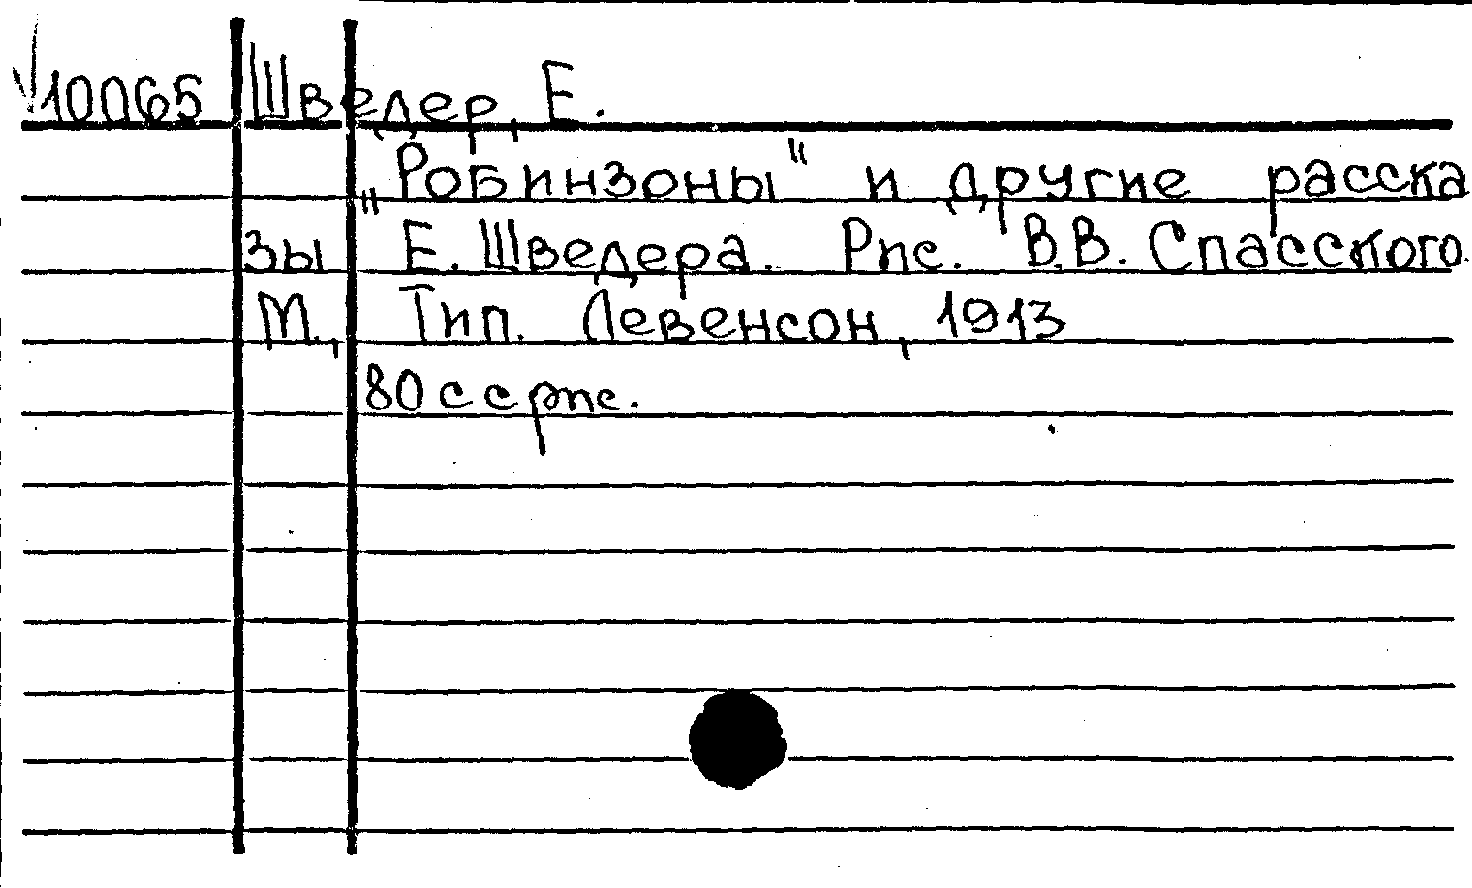 10065 Шведер, Е.
„Робинзоны" и другие расска
зы Е. Шведера. Рис. В.В. Спасского.
М., Тип. Левенсон, 1913
80 с с рис.